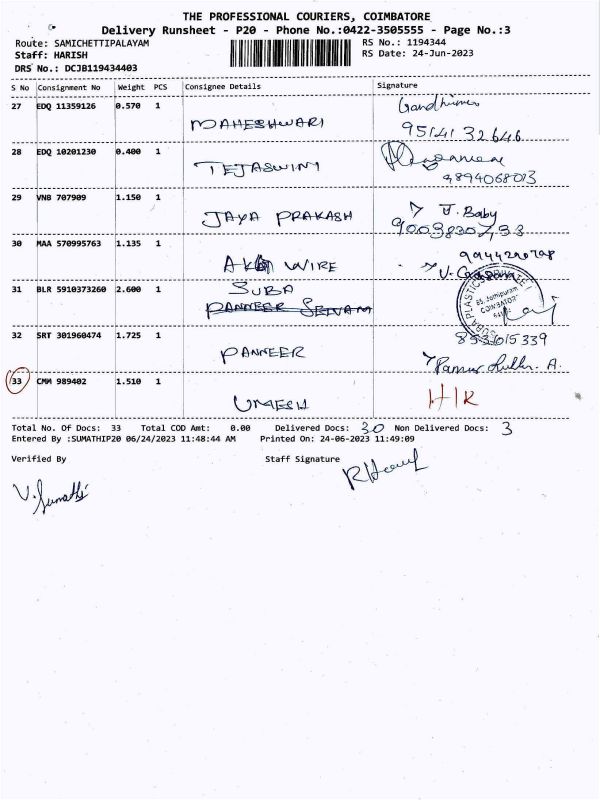 THE PROFESSIONAL COURIERS, COIMBATORE
Delivery Runsheet - P20 - Phone No.:0422-3505555 - Page No.:3
Route: SAMICHETTIPALAYAM RS No.: 1194344
Staff: HARISH RS Date: 24-Jun-2023
DRS No.: DCJB119434403
S No Consignment No Weight PCS Consignee Details Signature
27 EDQ 11359126 0.570 1 MAHESHWARI
95141 32646
28 EDQ 10201230 0.400 1 TEJASWINI
9894068013
29 VNB 707909 1.150 1 JAYA PRAKASH J. Baby
30 MAA 570995763 1.135 1 WIRE
31 BLR 5910373260 2.600 1 SUBA
PANNEER SELVAM
SUBA PLASTICS
COIMBATORE
32 SRT 301960474 1.725 1 PANNEER 8531015339
33 CMM 989402 1.510 1 UMESH
Total No. Of Docs: 33 Total COD Amt: 0.00 Delivered Docs: 30 Non Delivered Docs: 3
Entered By :SUMATHIP20 06/24/2023 11:48:44 AM Printed On: 24-06-2023 11:49:09
Verified By Staff Signature
V. Sumathi